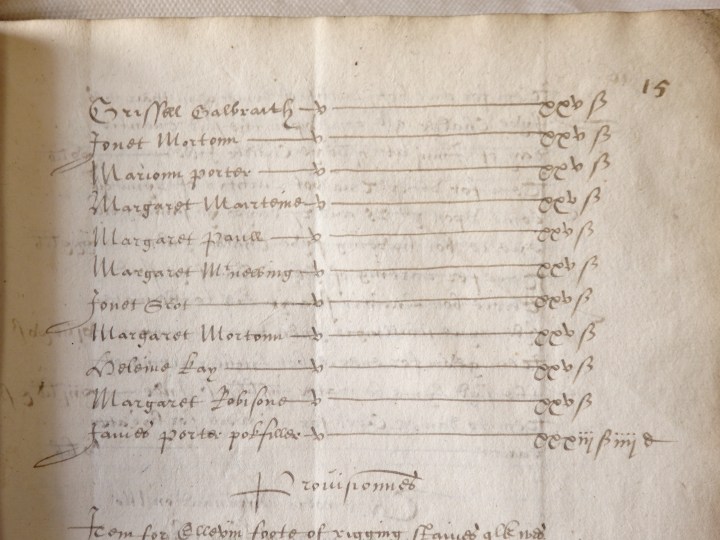 15
Grissell Galbraith v xxv ß
Jonet Mortoun v xxv ß
Marioun porter v xxv ß
Margaret Mairteine v xxv ß
Margaret paull v xxv ß
Margaret v xxv ß
Jonet Scot v xxv ß
Margaret Mortoun v xxv ß
Heleine kay v xxv ß
Margaret Robisone v xxv ß
James porter pokfiller v xxxiij ß iiij d
Provisiounes
Item for Ellevin foote of rigging staines